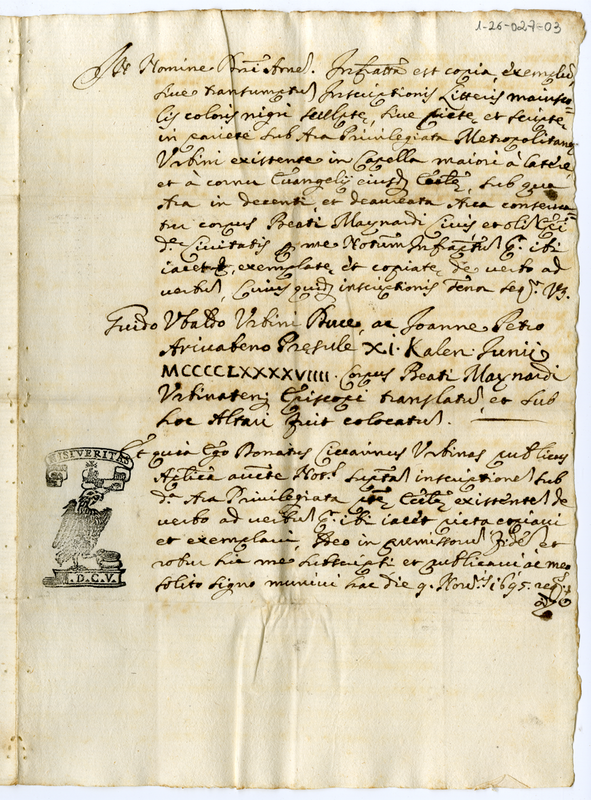 1-26-027-03
In Nomine Dni Amen. Infratta est copia, exemplu
sive transumptu Inscriptionis Litteris maiuscu
lis coloris nigri sculpte, sive picte, et scripte
in pariete sub Ara Privilegiata Metropolitane
Urbini existente in Capella maiori à latere,
et à cornu Evangelij eiusd Eccle, sub qua
Ara in decenti, et deaurata Arca conserva
tur corpus Beati Maynardi Civis et oli Epi
de Civitatis p me Notum Infrictu ibi
iacet, exemplate, et copiate, de verbo ad
verbu, Cuius quid inscriptionis tenor seqr. Vz.
Guido Ubaldo Urbini Duce, ac Joanne Petro
Arivabeno Presule XI. Kalen Junij
MCCCCLXXXXVIIII. Corpus Beati Maynardi
Urbinaten Episcopi translatu, et sub
hoc Altari fuit colocatu.
Et quia Ego Donatus Ciccarinus Urbinas publicus
Aplica aucte Not. supta inscriptione sub
da Ara Privilegiata Eccle existente de
verbo ad verbu ibi iacet picta copiavi
et exemplavi, Ideo in premissoru fide et
robur hic me subscripsi et publicavi ac meo
solito signo munivi hac die 9. Novris 1695. req.
NISI VERITAS
.D.C.V.